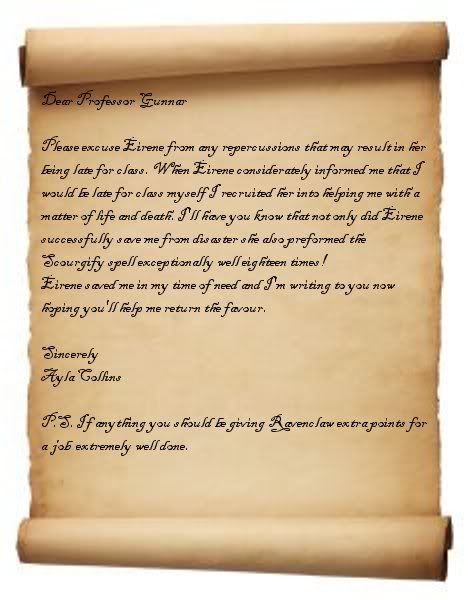 Dear Professor Gunnar
Please excuse Eirene from any repercussions that may result in her
being late for class. When Eirene considerately informed me that I
would be late for class myself I recruited her into helping me with a
matter of life and death. I'll have you know that not only did Eirene
successfully save me from disaster she also preformed the
Scourgify spell exceptionally well eighteen times!
Eirene saved me in my time of need and I'm writing to you now
hoping you'll help me return the favour.
Sincerely
Ayla Collins
P.S. If anything you should be giving Ravenclaw extra points for
a job extremely well done.